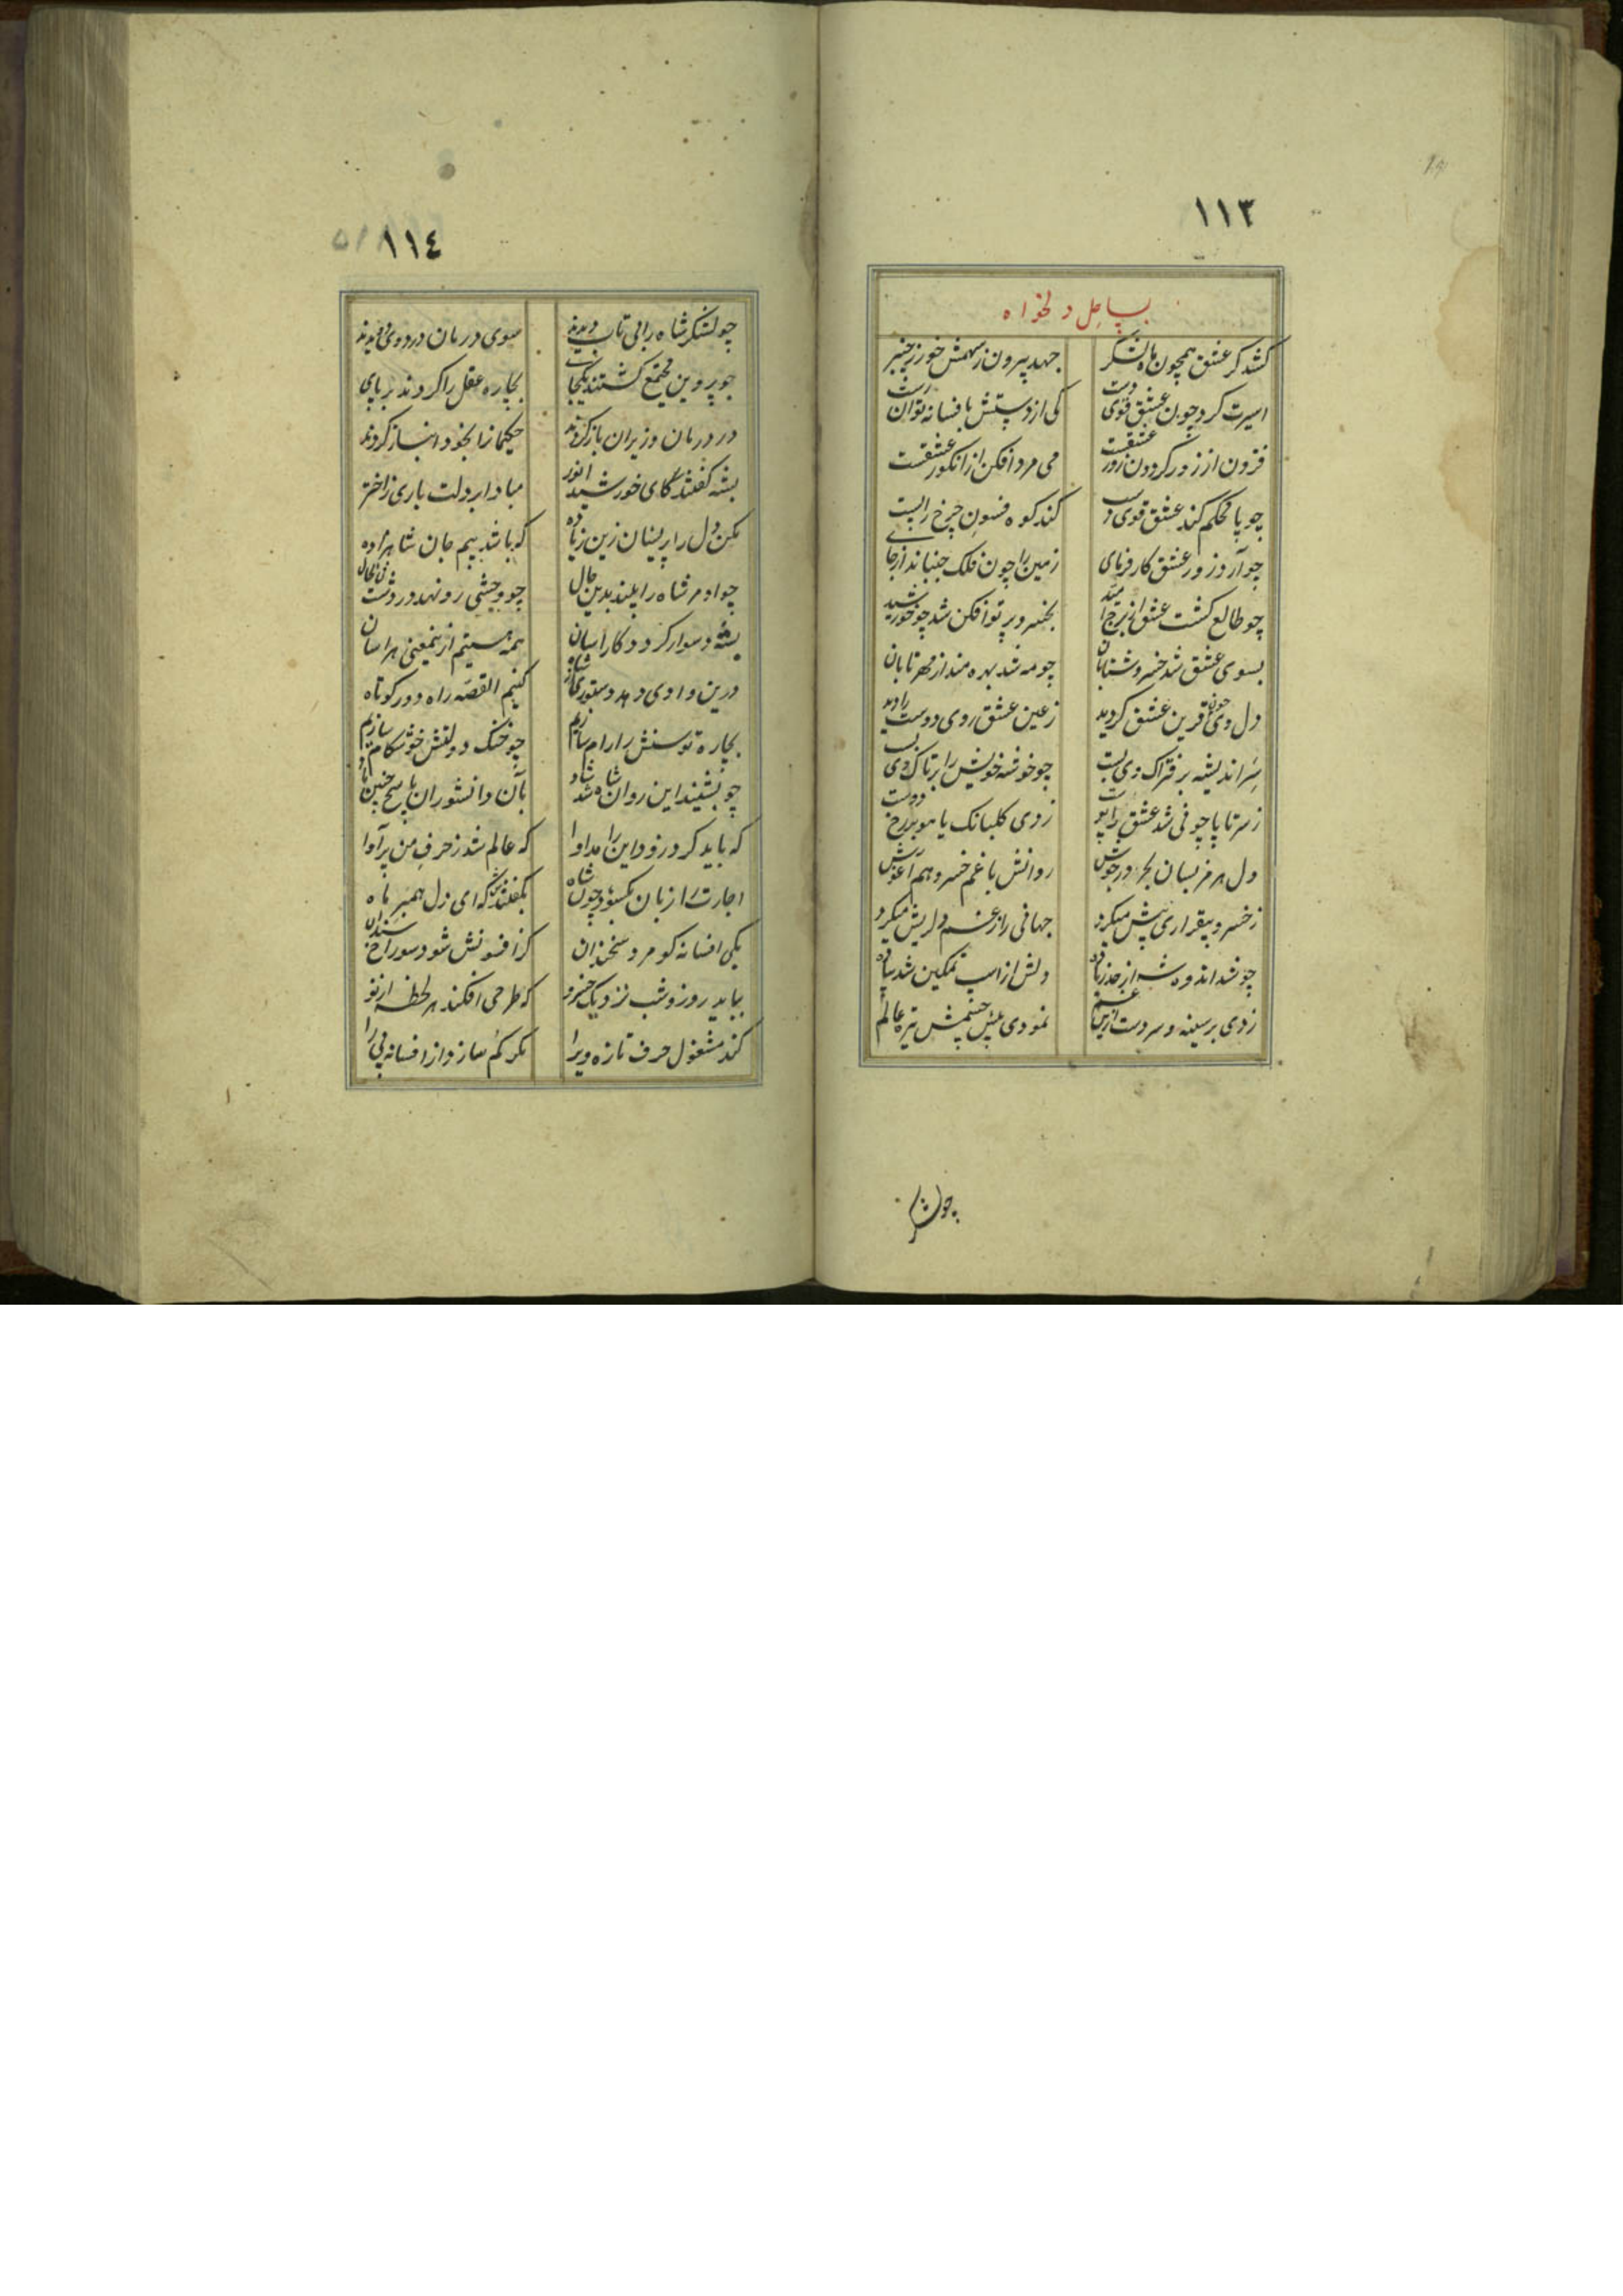 ١١٣
بساحل دلخواه
کشد گر عشق همچون ماه لشکر جهد بیرون ز سهمش خور ز چنبر
اسیرت کرد چون عشق قوی دست کی از دستش بافسانه توان رست
فزون از زور گردون زور عشقست می مرد افکن از انگور عشقست
چو پا محکم کند عشق قوی دست کند کوه فسون چرخ را پست
چو آرد زور عشق کارفرمای زمین را چون فلک جنباند از جای
چو طالع گشت عشق از برج امید بخسرو پرتو افکن شد چو خورشید
بسوی عشق شد خسرو شتابان چو مه شد بهره مند از مهر تابان
دل وی چون قرین عشق گردید ز عین عشق روی دوست را دید
سر اندیشه بر فتراک وی بست چو خوشه خویش را بر تاک وی بست
ز سر تا پا چو نی شد عشق را پوست زدی گلبانگ یا هو بر رخ دوست
دل هرمز بسان بحر در جوش روانش با غم خسرو هم آغوش
ز خسرو بیقراری بیش میکرد جهانی را ز غم دلریش میکرد
چو شد اندوه شه از حد زیاده دلش از اسپ تمکین شد پیاده
زدی بر سینه و سر دست ازین غم نمودی پیش چشمش تیره عالم
چو لشکر
١١٤
چو لشکر شاه را بی تاب دیدند سوی درمان درد وی دویدند
چو پروین مجتمع گشتند یکجای بچاره عقل را کردند بر پای
در درمان وزیران باز کردند حکیمانرا بخود انباز کردند
بشه گفتند کای خورشید انور مبادا بر دلت باری ز اختر
مکن دل را پریشان زین زیاده که باشد بیم جان شاهزاده
چو او مر شاه را بیند بدین حال چو وحشی رو نهد در دشت فی الحال
بشه دشوار گردد کار آسان همه هستیم ازینمعنی هراسان
درین وادی دهد دستوری ار شاه کنیم القصه راه دور کوتاه
بچاره توسنش را رام سازیم چو خنگ دولتش خوشکام سازیم
چو بشنید این روان شاه شد شاد بآن دانشوران پاسخ چنین داد
که باید کرد زود این را مداوا که عالم شد ز حرف من پر آوا
اجازت را زبان بگشود چون شاه بگفتندش که ای ز دل همبر ماه
یکی افسانه گو مرد سخندان کز افسونش شود سوراخ سندان
بباید روز و شب نزدیک خسرو که طرحی افکند هر لحظه از نو
کند مشغول حرف تازه ویرا مگر کم سازد از افسانه پی را